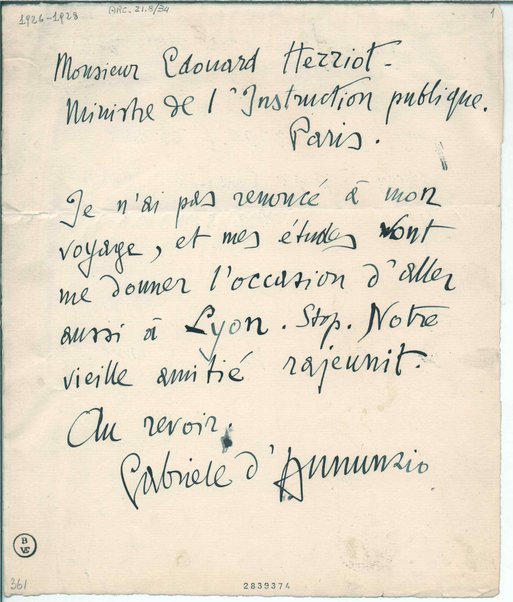 1926-1928
ARC. 21.8/34
1
Monsieur Edouard Herriot-
Ministre de l'Instruction publique.
Paris.
Je n'ai pas renoncé à mon
voyage, et mes études vont
me donner l'occasion d'aller
aussi à Lyon. Stop. Notre
vieille amitié rajeunit.
Au revoir.
Gabriele d'Annunzio
B
361
2839374